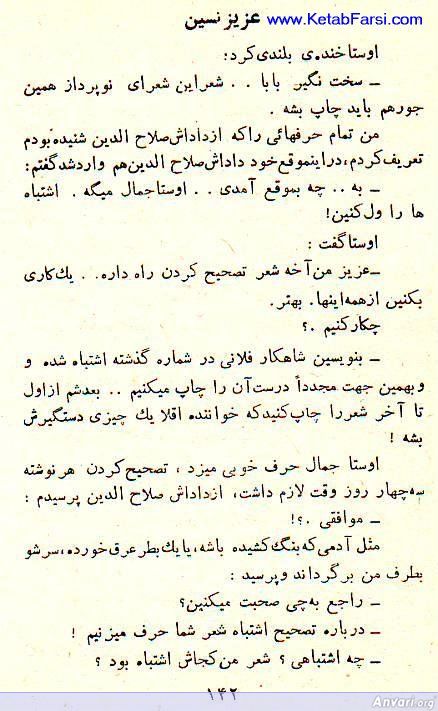 www.KetabFarsi.com عزیز نسین
اوستاخنده‌ی بلندی‌کرد:
ــ سخت نگیر بابا . . شعراین شعرای نوپرداز همین
جورهم باید چاپ بشه .
من تمام حرفهائی راکه ازداداش صلاح الدین شنیده بودم
تعریف کردم، دراینموقع خود داداش صلاح الدین‌هم واردشدگفتم:
ــ به .. چه بموقع آمدی . . اوستاجمال میگه . اشتباه
ها را ول‌کنین!
اوستاگفت :
ــ عزیز من‌آخه شعر تصحیح کردن راه داره. . یك‌کاری
بکنین ازهمه‌اینها. بهتر.
چکارکنیم .؟
ــ بنویسین شاهکار فلانی در شماره گذشته اشتباه شده و
وبهمین جهت مجدداً درست‌آن را چاپ میکنیم .. بعدشم ازاول
تا آخر شعررا چاپ‌کنیدکه خواننده اقلا یك چیزی دستگیرش
بشه !
اوستا جمال حرف خوبی میزد ، تصحیح‌کردن هرنوشته
سه‌چهار روز وقت لازم داشت، ازداداش صلاح الدین پرسیدم :
ــ موافقی .؟!
مثل آدمی‌که‌بنگ‌کشیده باشه، یایك‌بطرعرق‌خورده، سرشو
بطرف من برگرداند وپرسید :
ــ راجع به‌چی صحبت میکنین؟
ــ درباره تصحیح اشتباه شعر شما حرف میزنیم !
ــ چه اشتباهی ؟ شعر من‌کجاش اشتباه بود ؟
۱۴۲
Anvari.org